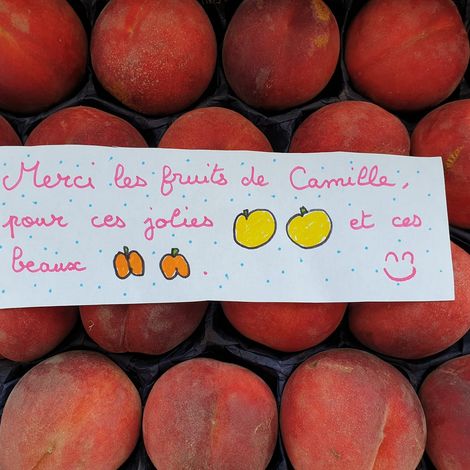 Merci les fruits de Camille,
pour ces jolies et ces
beaux .